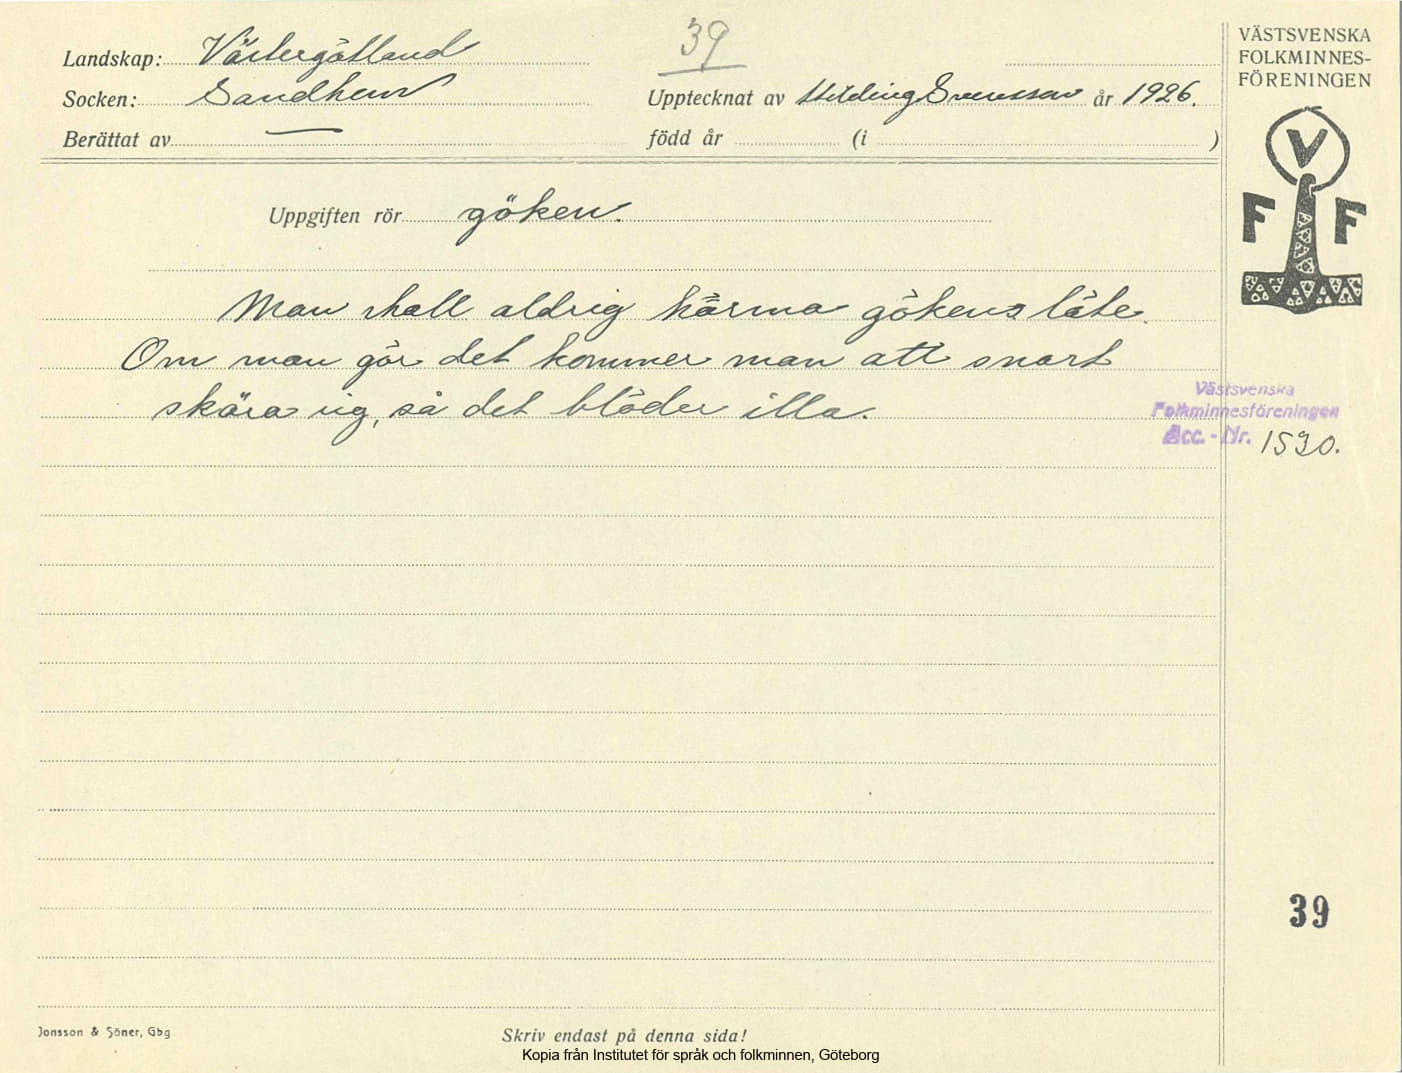 39
Landskap: Västergötland
Socken: Sandhem
Upptecknat av Hilding Svensson år 1926.
Berättat av —
född år (i )
VÄSTSVENSKA
FOLKMINNES-
FÖRENINGEN
V
F F
Uppgiften rör göken.
Man skall aldrig härma gökens läte.
Om man gör det kommer man att snart
skära sig, så det blöder illa.
Västsvenska
Folkminnesföreningen
Acc. - Nr. 1530.
39
Jonsson & Söner, Gbg
Skriv endast på denna sida!
Kopia från Institutet för språk och folkminnen, Göteborg